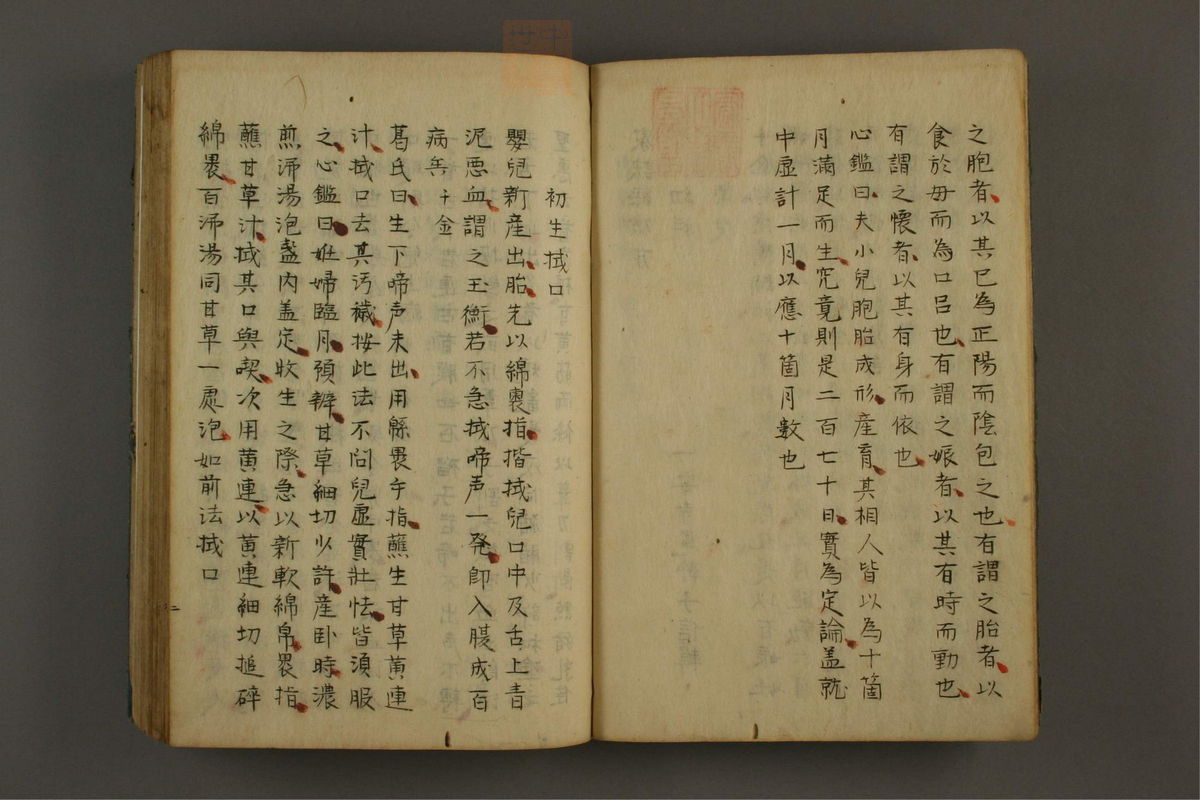 之胞者以其已為正陽而陰包之也有謂之胎者以
食於母而為口呂也有謂之娠者以其有時而動也
有謂之懷者以其有身而依也
心鑑曰夫小兒胞胎成形產育其相人皆以為十箇
月滿足而生究竟則是二百七十日實為定論盖就
中虛計一月以應十箇月數也
初生拭口
嬰兒新產出胎先以綿裹指揩拭兒口中及舌上青
泥悪血謂之玉衡若不急拭啼声一発即入腹成百
病矣千金
葛氏曰生下啼声未出用緜褁手指蘸生甘草黄連
汁拭口去其汚穢按此法不問兒虛實壯怯皆湏服
之心鑑曰姙婦臨月預辨甘草細切少許產卧時濃
煎沸湯泡盞内盖定收生之際急以新軟綿帛褁指
蘸甘草汁拭其口與喫次用黄連以黄連細切搥碎
綿褁百沸湯同甘草一處泡如前法拭口